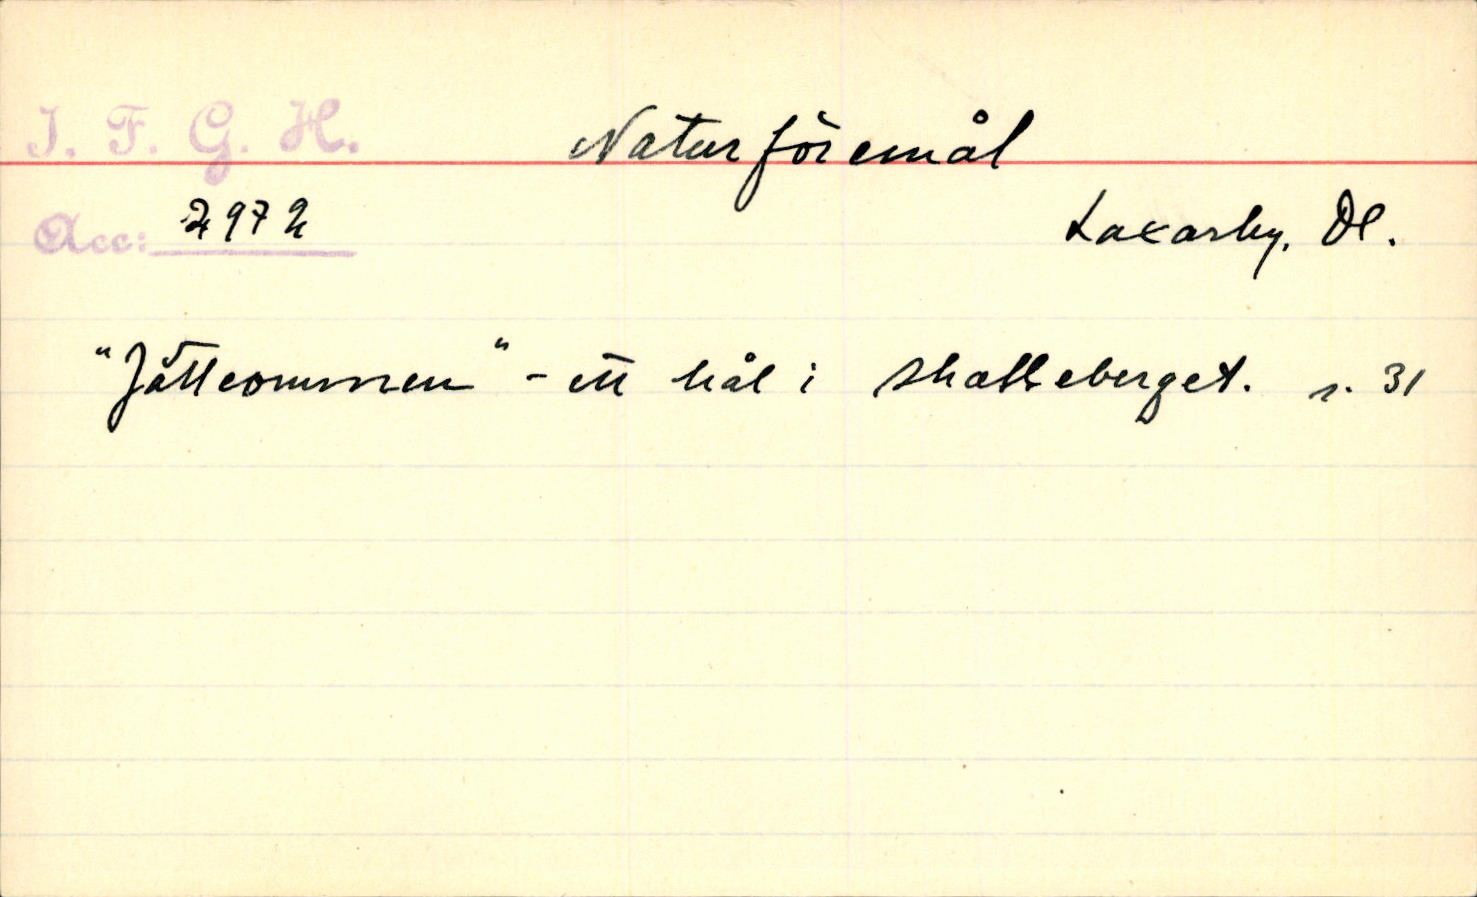 I. F. G. H.
Naturföremål
Acc: 2972
Laxarby, Dl.
"Jätteommen" - ett hål i skatteberget. s. 31